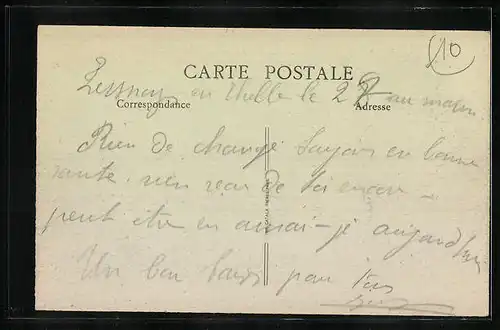 10
CARTE POSTALE
le 27 au matin
Correspondance
Adresse
Rien de changé toujours en bonne
santé. rien reçu de toi encore
peut être en aurai-je aujourd'hui
Un bon baiser pour tous